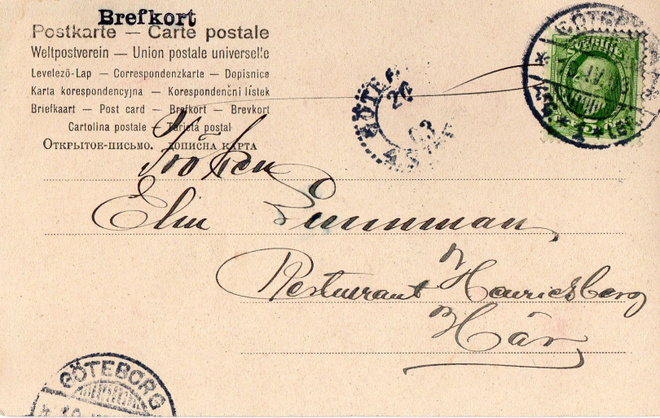 Brefkort
Postkarte — Carte postale
Weltpostverein — Union postale universelle
Levelező-Lap — Correspondenzkarte — Dopisnice
Karta korespondencyjna — Korespondenční lístek
Briefkaart — Post card — Brefkort — Brevkort
Cartolina postale — Tarjeta postal
Открытое-письмо. дописна карта
Fröken
Elin
Restaurant Henriksberg
Här
GÖTEBORG